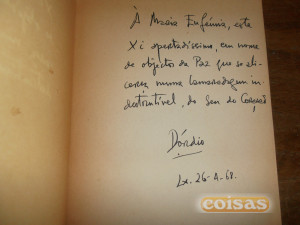 À Maria Eugénia, este
Xi apertadíssimo, em nome
de objectos da Paz que se ali-
cerça numa Camaradagem in-
destrutível, do Seu do Coração
Dórdio
Lx. 26-4-68.
coisas